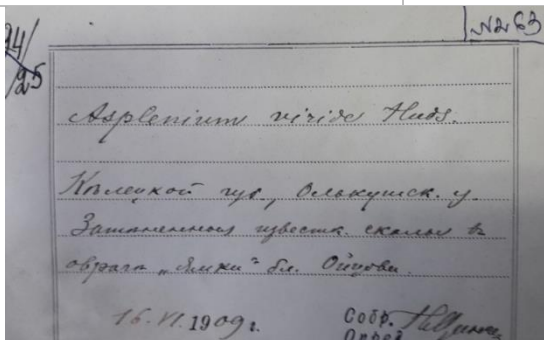 № 63
94/
25
Asplenium viride Huds.
Келецкой губ., Олькушск. у.
Затененныя известк. скалы в
овраге „Ямки“ бл. Ойцова.
16. VI. 1909 г.
Собр.
Опред.